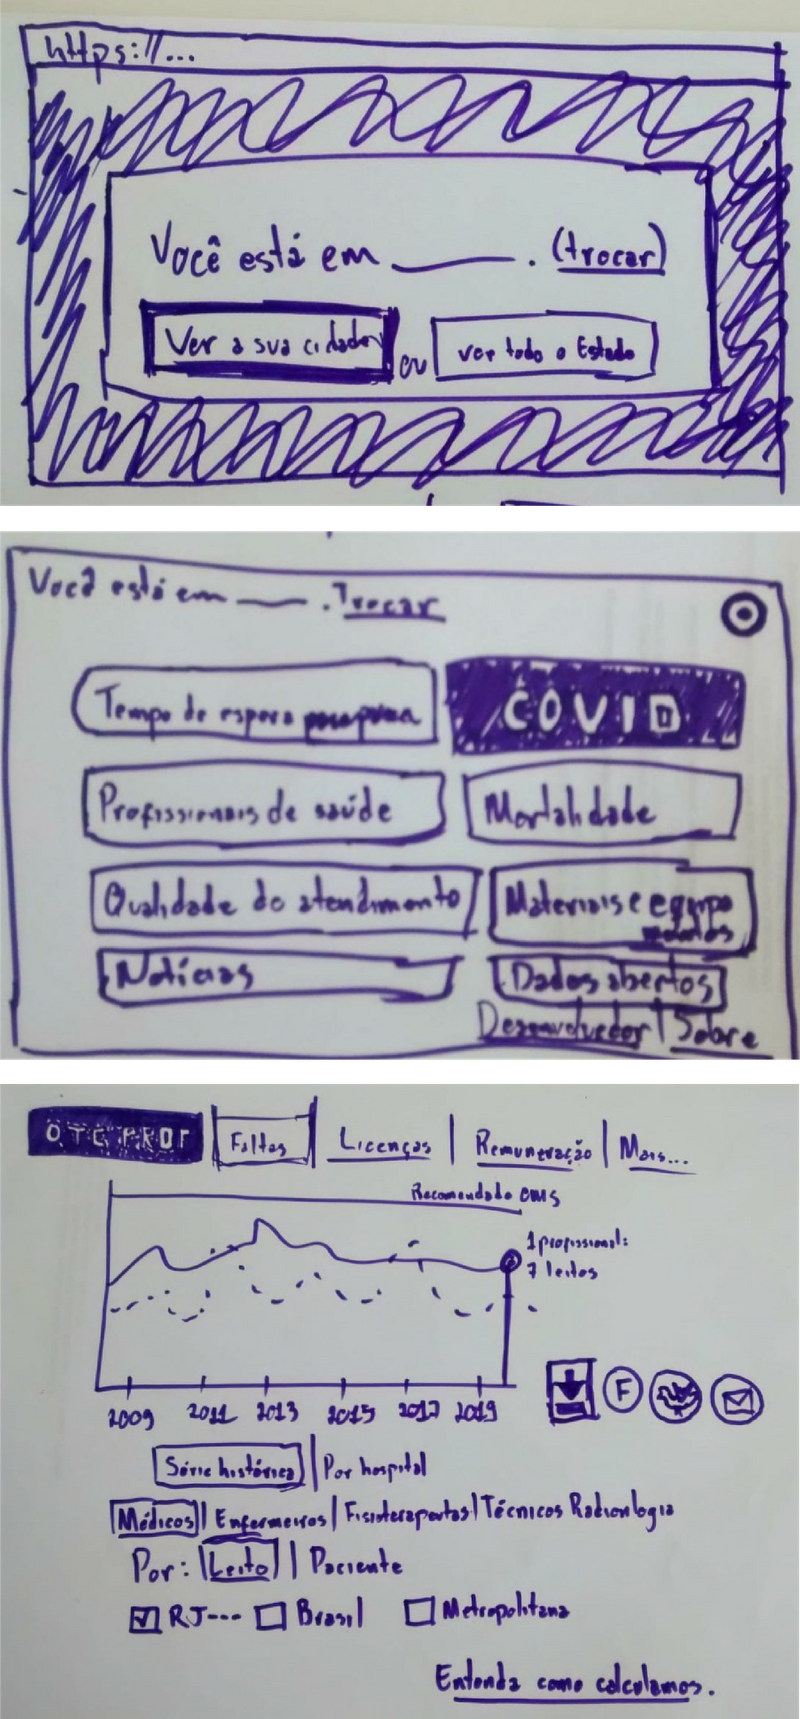 https://...
Você está em ______. (trocar)
Ver a sua cidade ou ver todo o Estado
Você está em ____. Trocar
Tempo de espera
COVID
Profissionais de saúde
Mortalidade
Qualidade do atendimento
Materiais e equipa
mentos
Notícias
Dados abertos
Desenvolvedor | Sobre
QTE PROF
Faltas
Licenças | Remuneração | Mais...
Recomendado OMS
1 profissional:
7 leitos
2009 2011 2013 2015 2017 2019
F
Série histórica | Por hospital
Médicos | Enfermeiros | Fisioterapeutas | Técnicos Radiologia
Por: | Leito | Paciente
RJ--- Brasil Metropolitana
Entenda como calculamos.